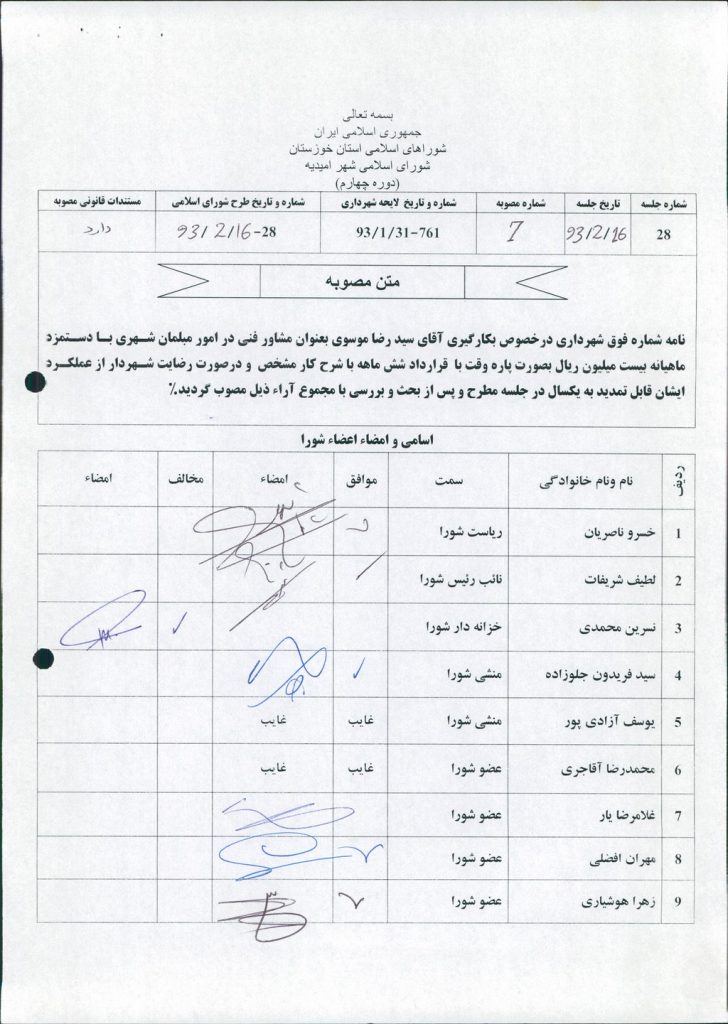 بسمه تعالی
جمهوری اسلامی ایران
شوراهای اسلامی استان خوزستان
شورای اسلامی شهر امیدیه
(دوره چهارم)
شماره جلسه تاریخ جلسه شماره مصوبه شماره و تاریخ لایحه شهرداری شماره و تاریخ طرح شورای اسلامی مستندات قانونی مصوبه
28 93/2/16 7 93/1/31-761 93/2/16-28 دارد
متن مصوبه
نامه شماره فوق شهرداری درخصوص بکارگیری آقای سید رضا موسوی بعنوان مشاور فنی در امور مبلمان شهری با دستمزد
ماهیانه بیست میلیون ریال بصورت پاره وقت با قرارداد شش ماهه با شرح کار مشخص و درصورت رضایت شهردار از عملکرد
ایشان قابل تمدید به یکسال در جلسه مطرح و پس از بحث و بررسی با مجموع آراء ذیل مصوب گردید.٪
اسامی و امضاء اعضاء شورا
ردیف نام ونام خانوادگی سمت موافق امضاء مخالف امضاء
1 خسرو ناصریان ریاست شورا
2 لطیف شریفات نائب رئیس شورا
3 نسرین محمدی خزانه دار شورا ✓
4 سید فریدون جلوزاده منشی شورا ✓
5 یوسف آزادی پور منشی شورا غایب غایب
6 محمدرضا آقاجری عضو شورا غایب غایب
7 غلامرضا یار عضو شورا
8 مهران افضلی عضو شورا ✓
9 زهرا هوشیاری عضو شورا ✓